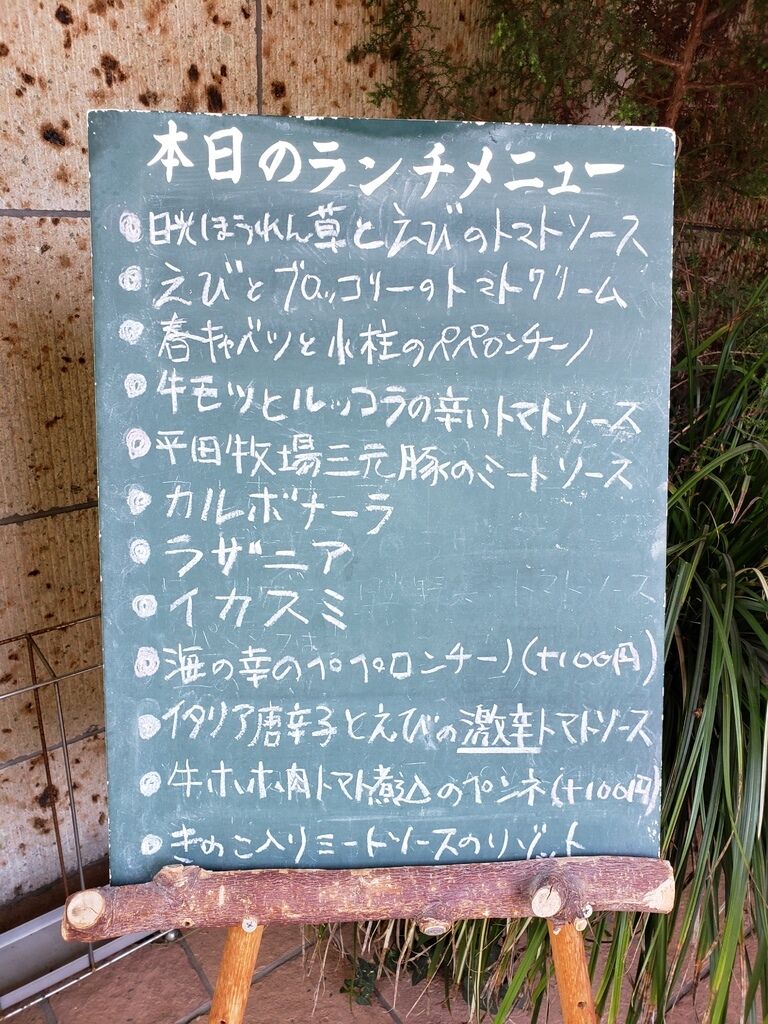 本日のランチメニュー
◎日光ほうれん草とえびのトマトソース
◎えびとブロッコリーのトマトクリーム
◎春キャベツと小柱のペペロンチーノ
◎牛モツとルッコラの辛いトマトソース
◎平田牧場三元豚のミートソース
◎カルボナーラ
◎ラザニア
◎イカスミ
◎海の幸のペペロンチーノ(+100円)
◎イタリア唐辛子とえびの激辛トマトソース
◎牛ホホ肉トマト煮込のペンネ(+100円)
◎きのこ入りミートソースのリゾット